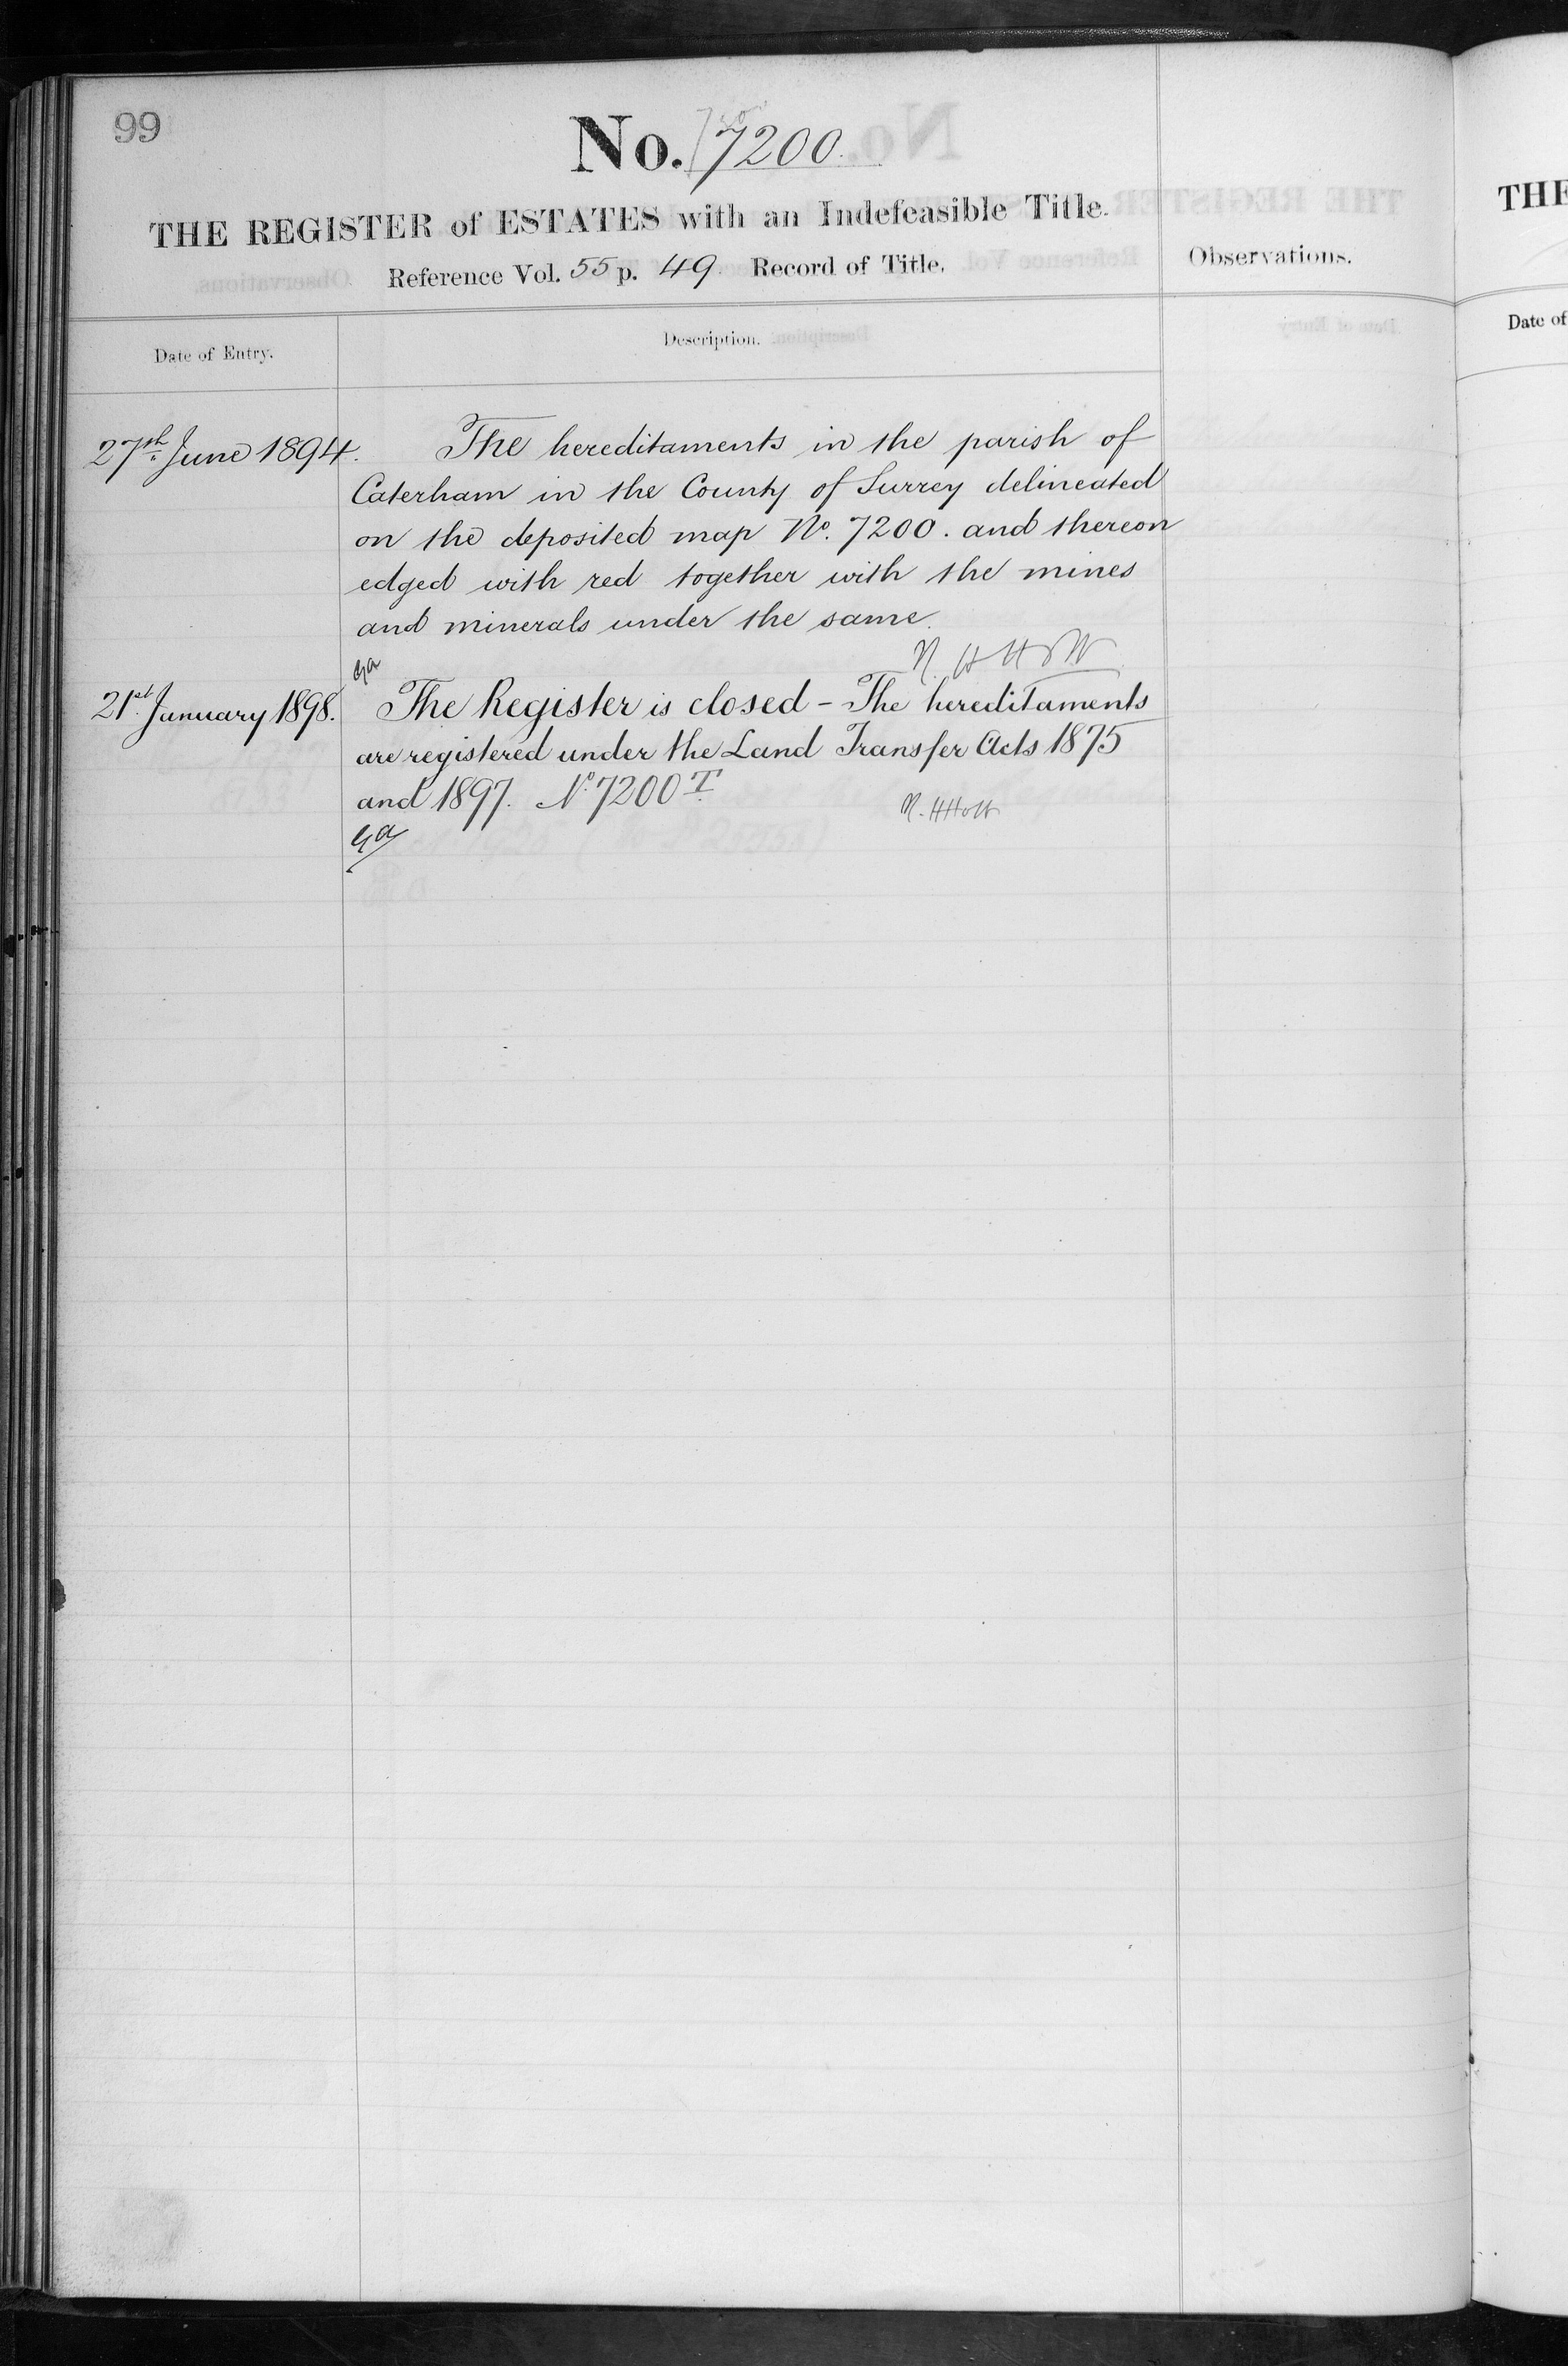 99
No. 7200.
THE REGISTER of ESTATES with an Indefeasible Title.
Reference Vol. 55 p. 49 Record of Title.
Observations.
Date of Entry.
Description.
27th June 1894. The hereditaments in the parish of
Caterham in the County of Surrey delineated
on the deposited map No. 7200. and thereon
edged with red together with the mines
and minerals under the same.
21st January 1898. The Register is closed - The hereditaments
are registered under the Land Transfer Acts 1875
and 1897. No. 7200 T.
THE
Date of